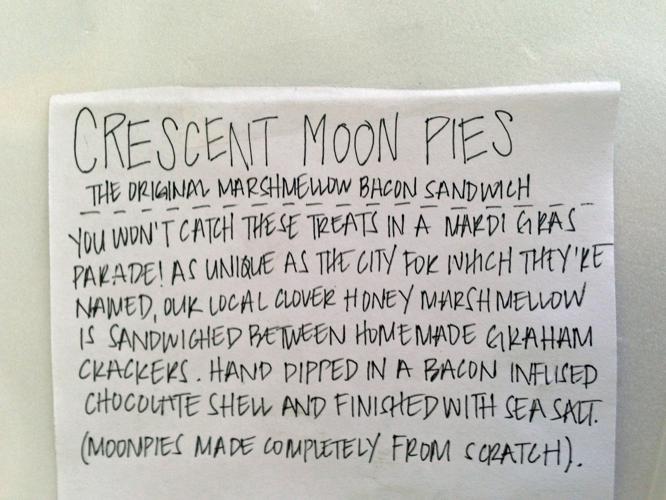 CRESCENT MOON PIES
THE ORIGINAL MARSHMELLOW BACON SANDWICH
YOU WON'T CATCH THESE TREATS IN A MARDI GRAS
PARADE! AS UNIQUE AS THE CITY FOR WHICH THEY'RE
NAMED, OUR LOCAL CLOVER HONEY MARSHMELLOW
IS SANDWICHED BETWEEN HOMEMADE GRAHAM
CRACKERS. HAND DIPPED IN A BACON INFUSED
CHOCOLATE SHELL AND FINISHED WITH SEA SALT.
(MOONPIES MADE COMPLETELY FROM SCRATCH).